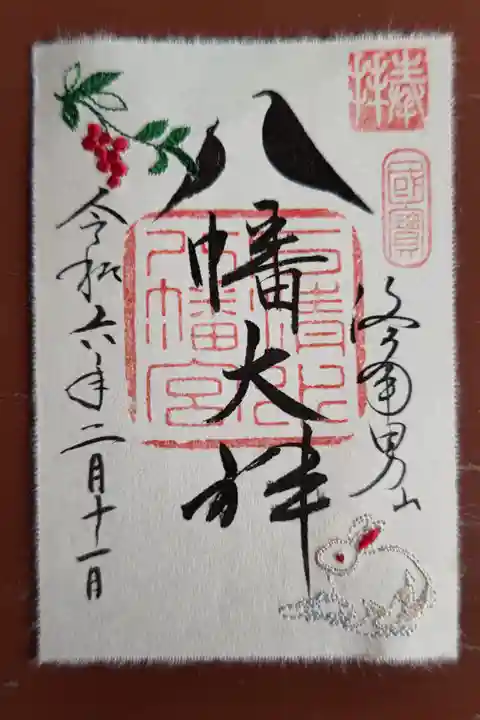 奉拝
國寶
洛南男山
八幡大神
石清水
八幡宮
令和六年二月十一日